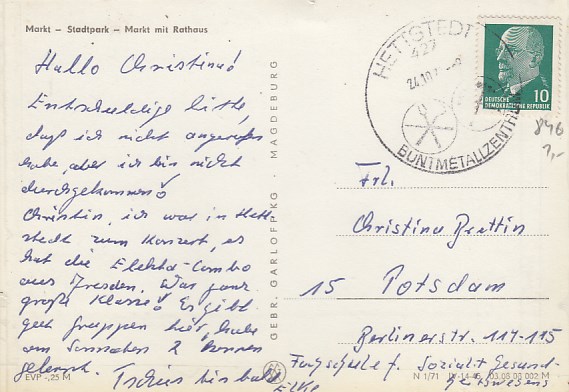 Markt – Stadtpark – Markt mit Rathaus
Hallo Christine!
Entschuldige bitte,
daß ich nicht angerufen
habe, aber ich bin nicht
durchgekommen!
Christin, ich war in Hett-
stedt zum Konzert, es
hat die Elektra-Combo
aus Dresden. War ganz
große Klasse! Es gibt
gute Gruppen hier, habe
am 2 kennen
gelernt. Tschüs bis bald
GEBR. GARLOFF KG · MAGDEBURG
HETTSTEDT
427
24.10.
BUNTMETALLZENTRUM
10
DEUTSCHE
DEMOKRATISCHE REPUBLIK
846
1,-
Frl.
Christina Brettin
15 Potsdam
Berlinerstr. 114-115
Fachschule f. Sozialt Gesund-
heitswesens
EVP -,25 M
N 1/71 IV-14-45 03 08 06 002 M